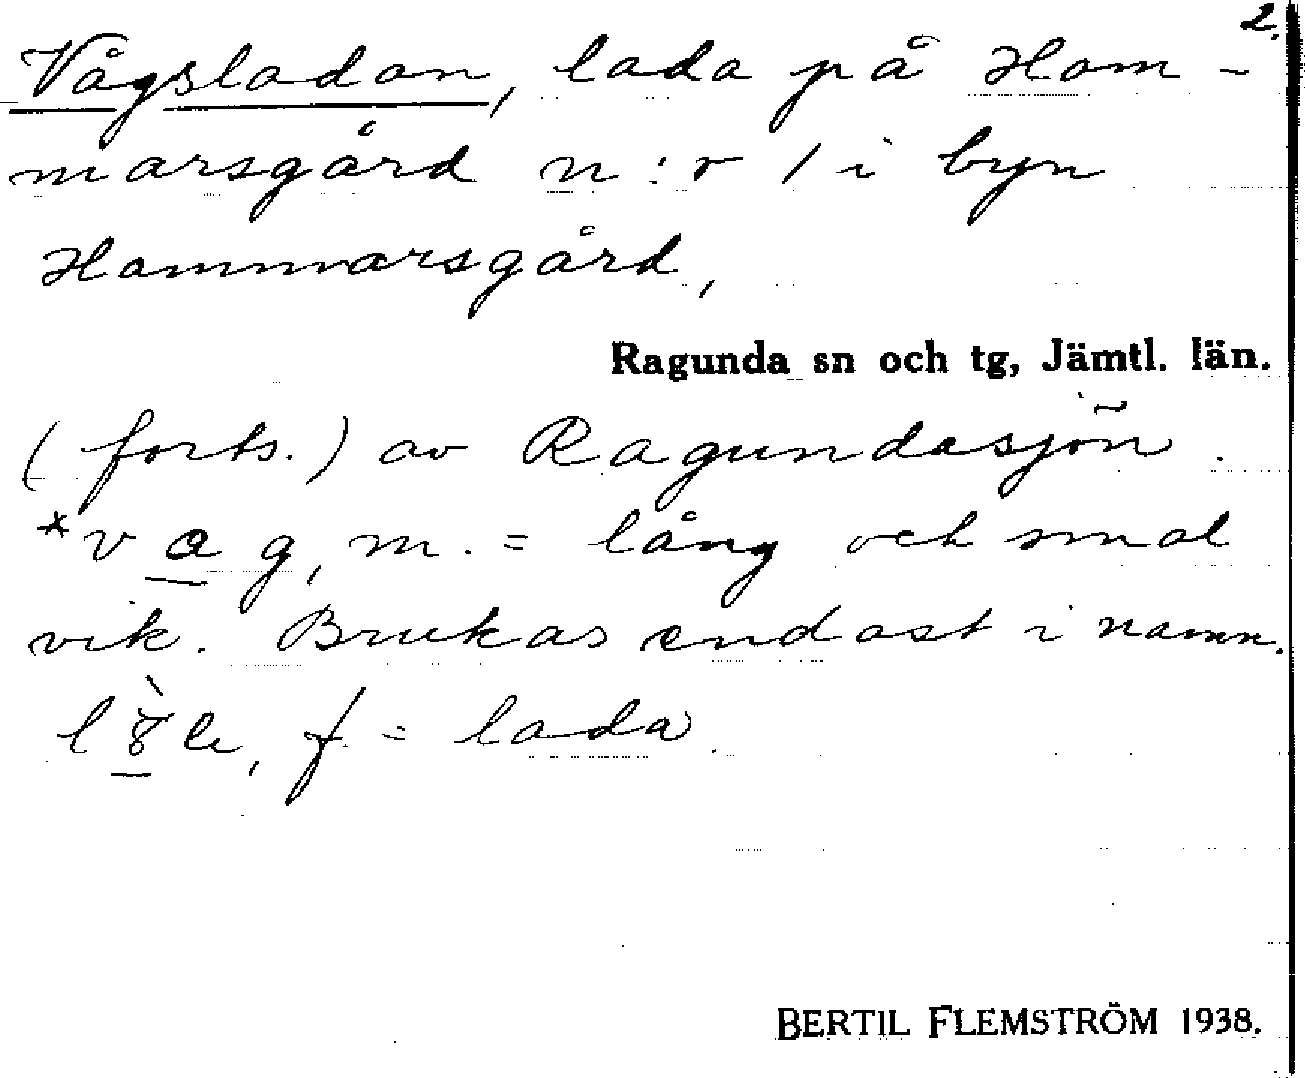 2.
Vågsladan, lada på Ham-
marsgård n:r 1 i byn
Hammarsgård,
Ragunda sn och tg, Jämtl. län.
(forts.) av Ragundasjön.
*vag, m. = lång och smal
vik. Brukas endast i namn.
f. = lada
BERTIL FLEMSTRÖM 1938.